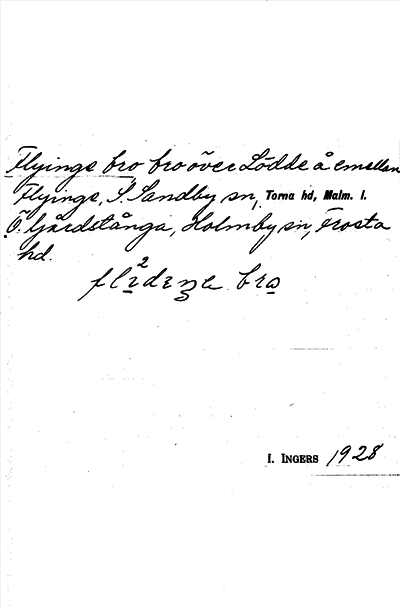 Flyinge bro bro över Lödde å emellan
Flyinge, S. Sandby sn, Torna hd, Malm. l.
Ö. Gårdstånga, Holmby sn, Frosta
hd.
bro
I. INGERS 1928